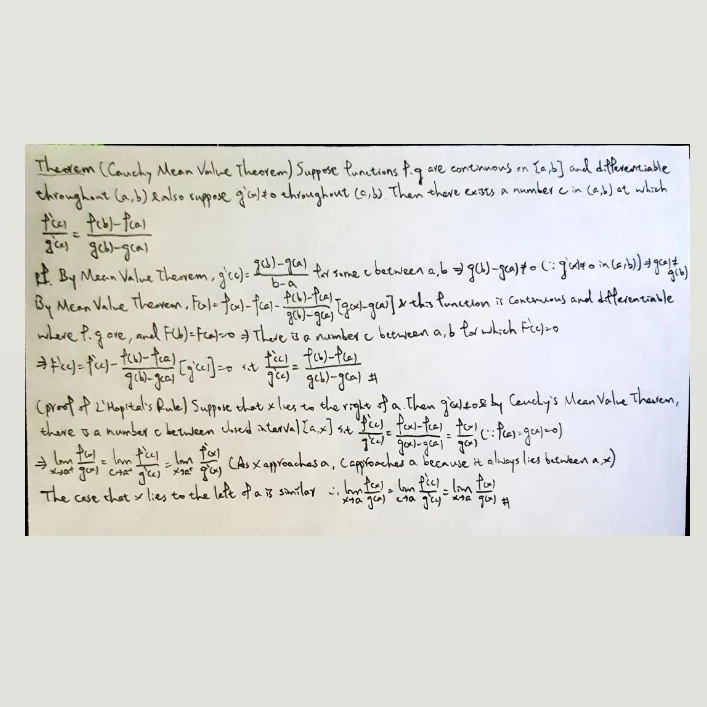 Theorem (Cauchy Mean Value Theorem) Suppose functions f, g are continuous on [a,b] and differentiable
throughout (a,b) & also suppose g'(x)≠0 throughout (a,b). Then there exists a number c in (a,b) at which
f'(c)/g'(c) = (f(b)-f(a))/(g(b)-g(a))
pf. By Mean Value Theorem, g'(c) = (g(b)-g(a))/(b-a) for some c between a,b ⇒ g(b)-g(a)≠0 (∵ g'(x)≠0 in (a,b)) ⇒ g(a)≠g(b)
By Mean Value Theorem, F(x) = f(x)-f(a)-(f(b)-f(a))/(g(b)-g(a)) [g(x)-g(a)] & this function is continuous and differentiable
where f, g are, and F(b)=F(a)=0 ⇒ There is a number c between a,b for which F'(c)=0
⇒ F'(c) = f'(c)-(f(b)-f(a))/(g(b)-g(a)) [g'(c)]=0 s.t f'(c)/g'(c) = (f(b)-f(a))/(g(b)-g(a)) #
(proof of L'Hopital's Rule) Suppose that x lies to the right of a. Then g'(x)≠0 & by Cauchy's Mean Value Theorem,
there is a number c between closed interval [a,x] s.t f'(c)/g'(c) = (f(x)-f(a))/(g(x)-g(a)) = f(x)/g(x) (∵ f(a)=g(a)=0)
⇒ lim x→a⁺ f(x)/g(x) = lim c→a⁺ f'(c)/g'(c) = lim x→a⁺ f'(x)/g'(x) (As x approaches a, c approaches a because it always lies between a,x)
The case that x lies to the left of a is similar ∴ lim x→a f(x)/g(x) = lim c→a f'(c)/g'(c) = lim x→a f'(x)/g'(x) #